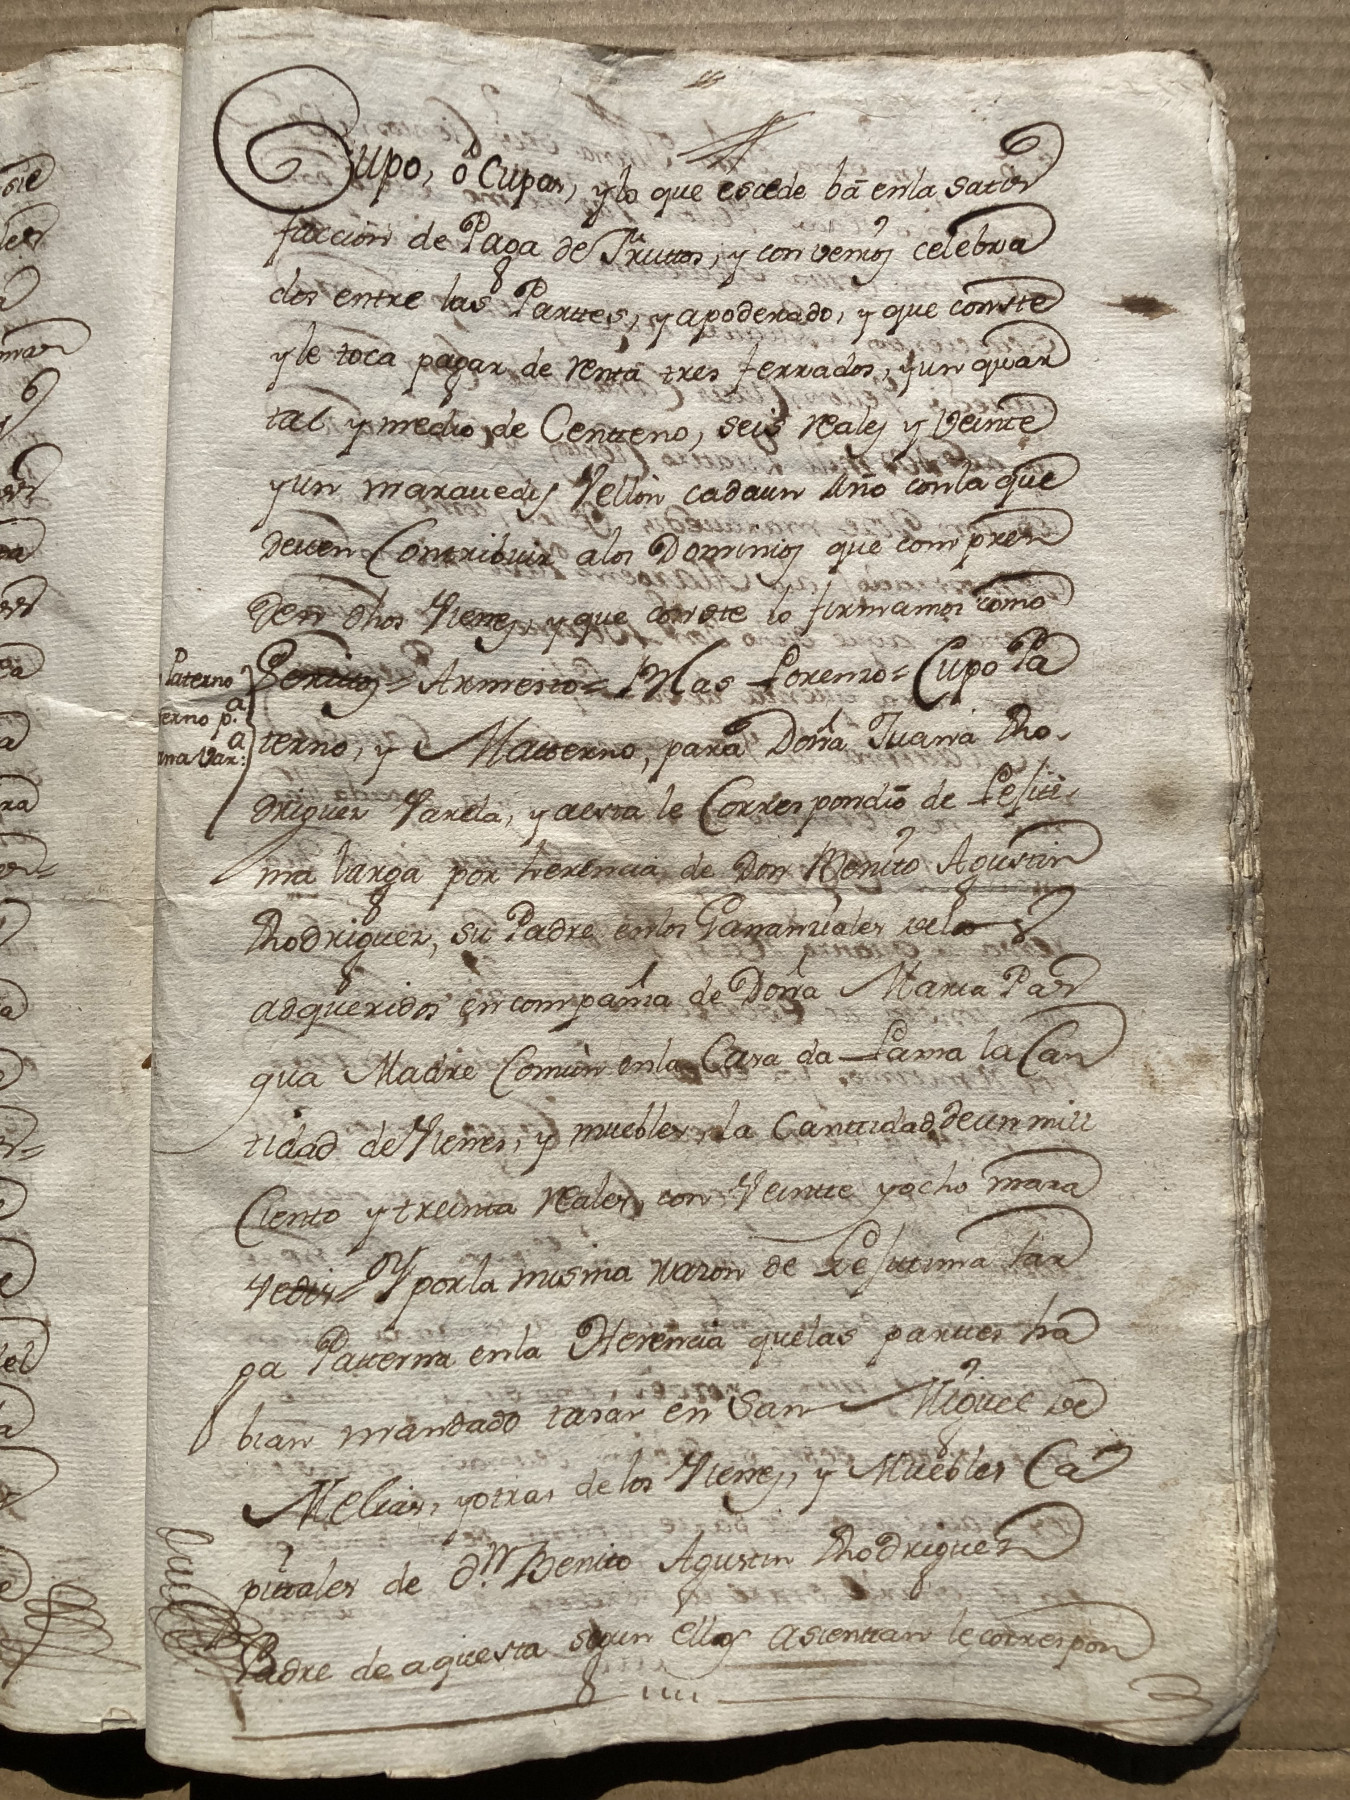 Cupo, ô Cupos, y lo que escede bâ en la satis
faccion de Paga de Fruttos, y convenios celebra
dos entre las Parttes, y apoderado, y que conste
y le toca pagar de renta tres ferrados, y un quar
tal y medio de Centteno, seis reales y Veinte
y un maravedis Vellon cada un Año con la que
deven Contribuir a los Dominios que compren
den dhos Vienes, y que conste lo firmamos como
Peritos = Armesto = Mas Lorenzo = Cupo Pa
terno, y Matterno, para Doña Juana Rho
driguez Varela, y a esta le Correspondiô de Lejiti
ma larga por herencia de Don Benito Agustin
Rhodriguez, su Padre en los Gananciales de los
adqueridos en compañia de Doña Maria Par
gua Madre Comùn en la Casa da Lama la Can
tidad de Vienes, y muebles, la Canttidad de un mill
Ciento y treinta reales, con Veintte y ocho mara
vedis = Y por la misma razon de Lejitima lar
ga Patterna en la Herencia que las parttes ha
bian mandado tasar en San Miguel de
Melias, y otras de los Vienes, y Muebles Ca
pittales de Dn Benito Agustin Rhodriguez
Padre de aquesta segun ellos asienttan le correspon
Paterno
erno p.a
ana Var.a